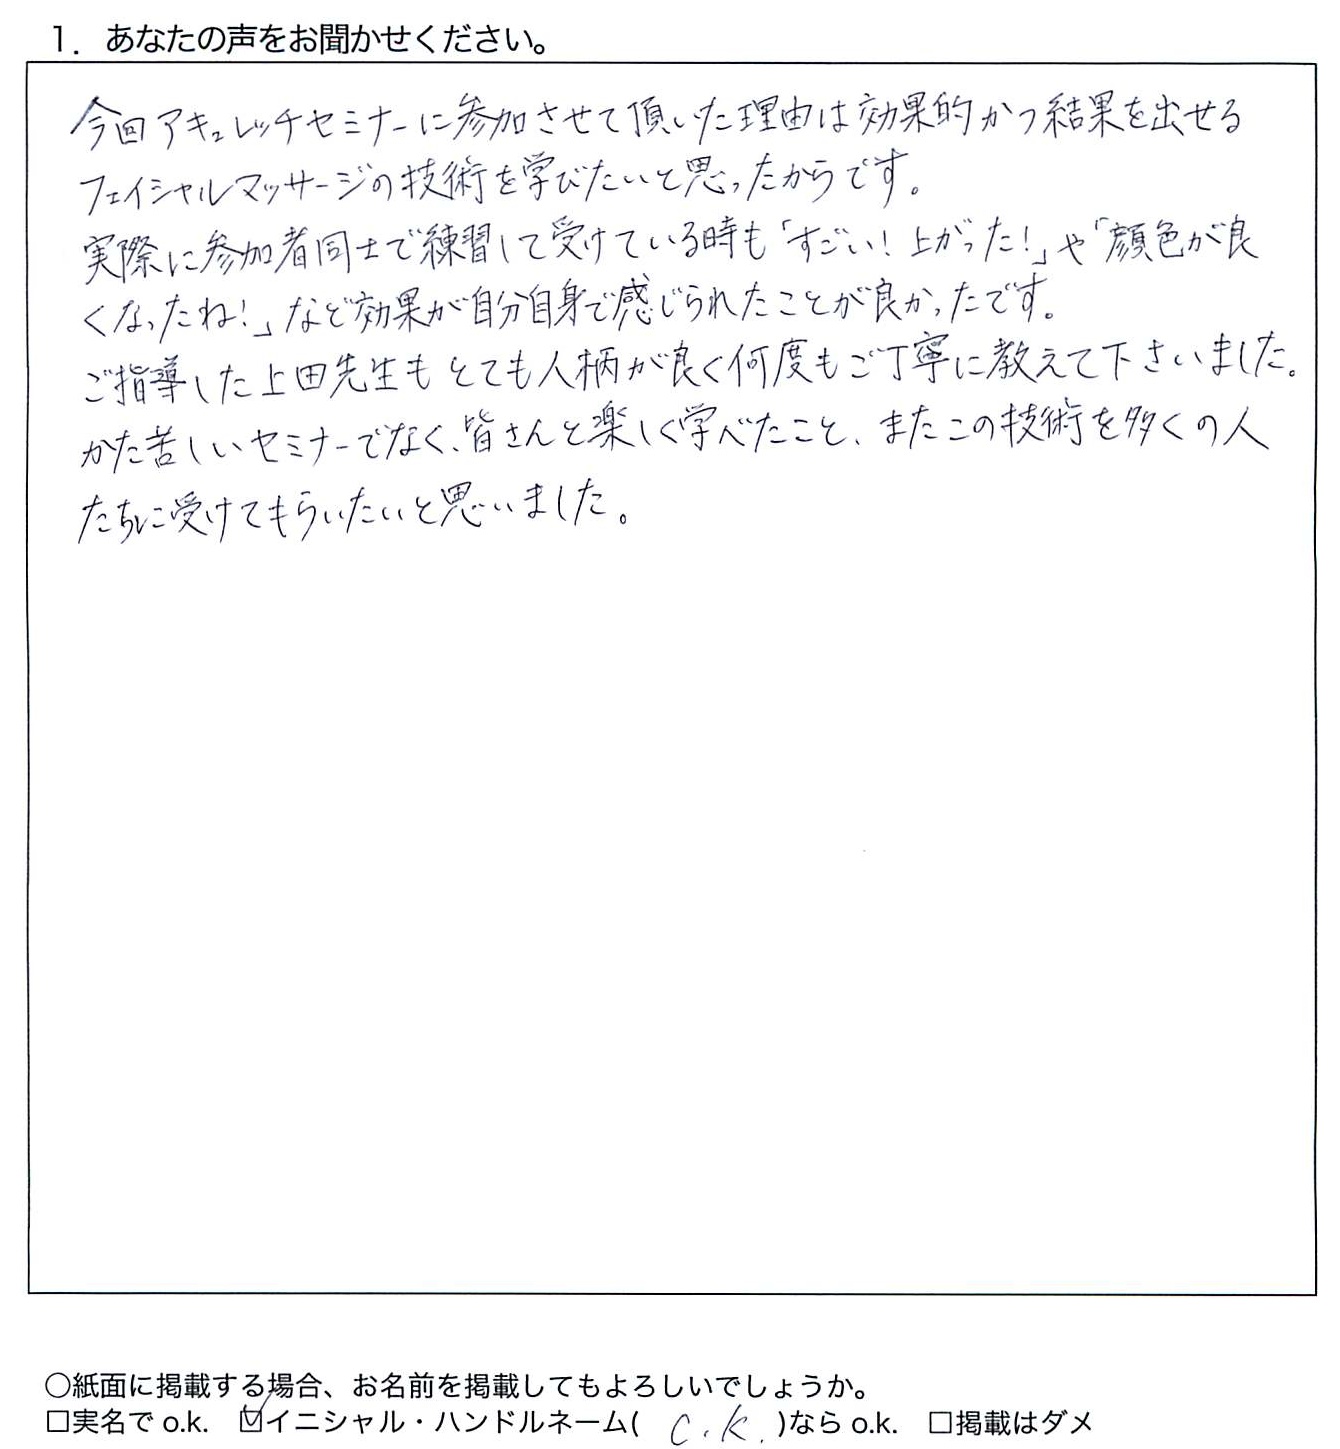 1. あなたの声をお聞かせください。
今回アキュレッチセミナーに参加させて頂いた理由は効果的かつ結果を出せる
フェイシャルマッサージの技術を学びたいと思ったからです。
実際に参加者同士で練習して受けている時も「すごい!上がった!」や「顔色が良
くなったね!」など効果が自分自身で感じられたことが良かったです。
ご指導した上田先生もとても人柄が良く何度もご丁寧に教えて下さいました。
かた苦しいセミナーでなく、皆さんと楽しく学べたこと、またこの技術を多くの人
たちに受けてもらいたいと思いました。
○紙面に掲載する場合、お名前を掲載してもよろしいでしょうか。
□実名で o.k. ☑イニシャル・ハンドルネーム( C.K. )なら o.k. □掲載はダメ